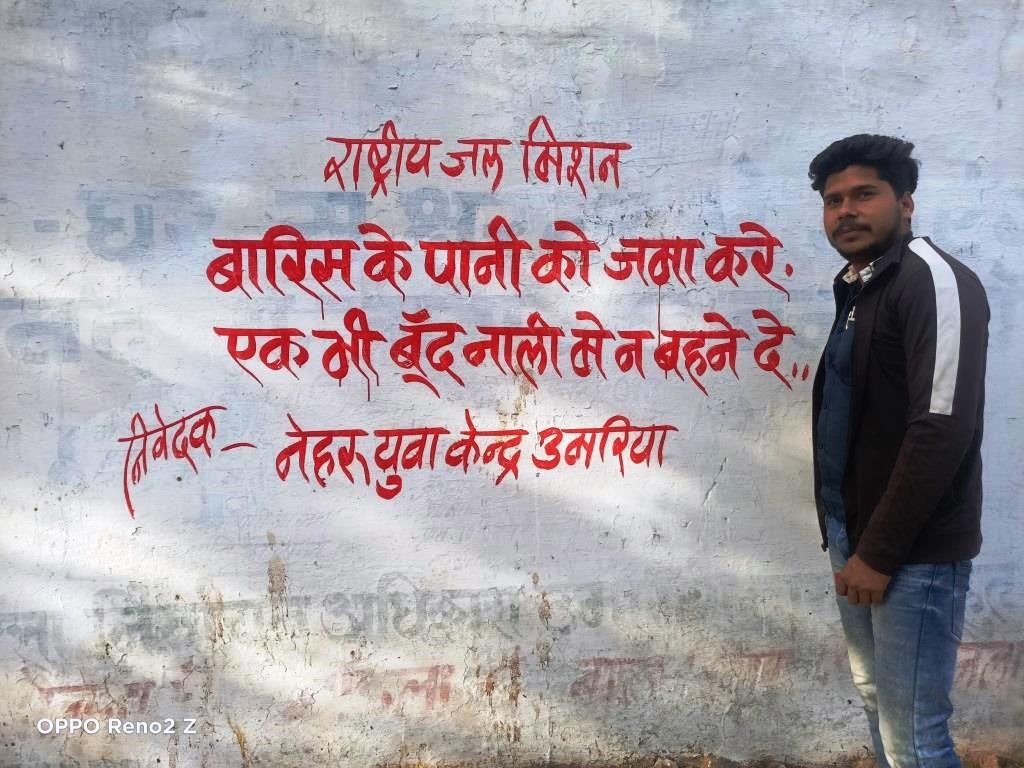 राष्ट्रीय जल मिशन
बारिस के पानी को जमा करे.
एक भी बूँद नाली मे न बहने दे..
निवेदक - नेहरू युवा केन्द्र उमरिया
अधिकार
OPPO Reno2 Z